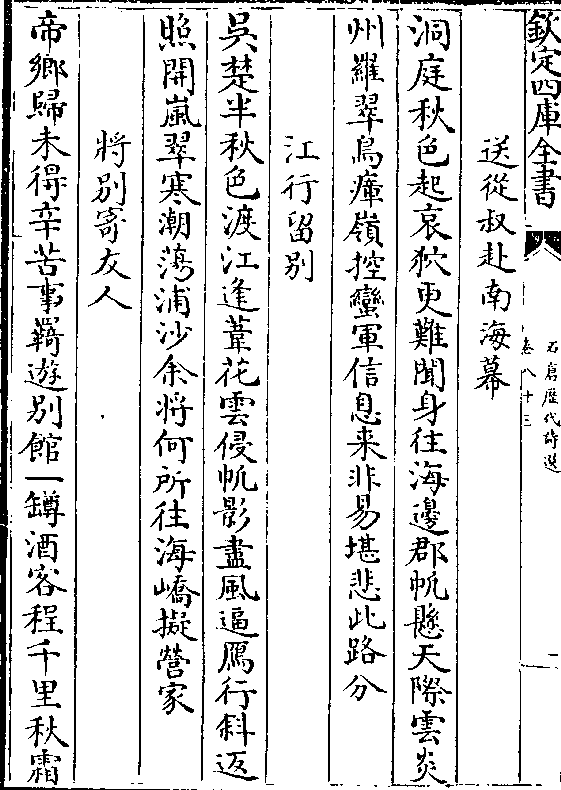 欽定四庫全書
石倉歷代詩選
卷八十三
二
送從叔赴南海幕
洞庭秋色起哀狖更難聞身往海邊郡帆懸天際雲炎
州羅翠鳥瘴嶺控蠻軍信息来非易堪悲此路分
江行留别
吳楚半秋色渡江逢葦花雲侵帆影盡風逼鴈行斜返
照開嵐翠寒潮蕩浦沙余將何所往海嶠擬營家
將别寄友人
帝鄉歸未得辛苦事羇遊别館一罇酒客程千里秋霜